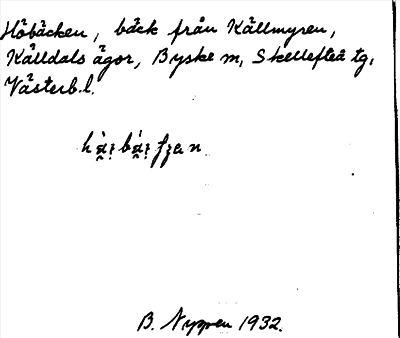 Höbäcken, bäck från Källmyren,
Källdals ägor, Byske m, Skellefteå tg,
Västerb.l.
B. Nygren 1932.